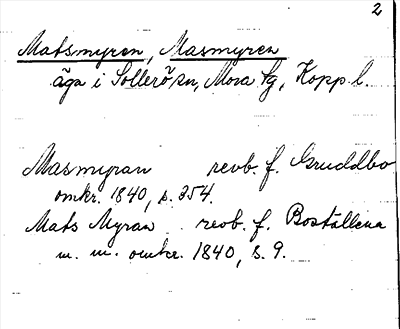 2
Matsmyren, Masmyren
äga i Sollerö sn, Mora tg, Kopp. l.
Masmyran revb. f. Gruddbo
omkr. 1840, s. 254.
Mats Myran revb. f. Boställena
m. m. omkr. 1840, s. 9.